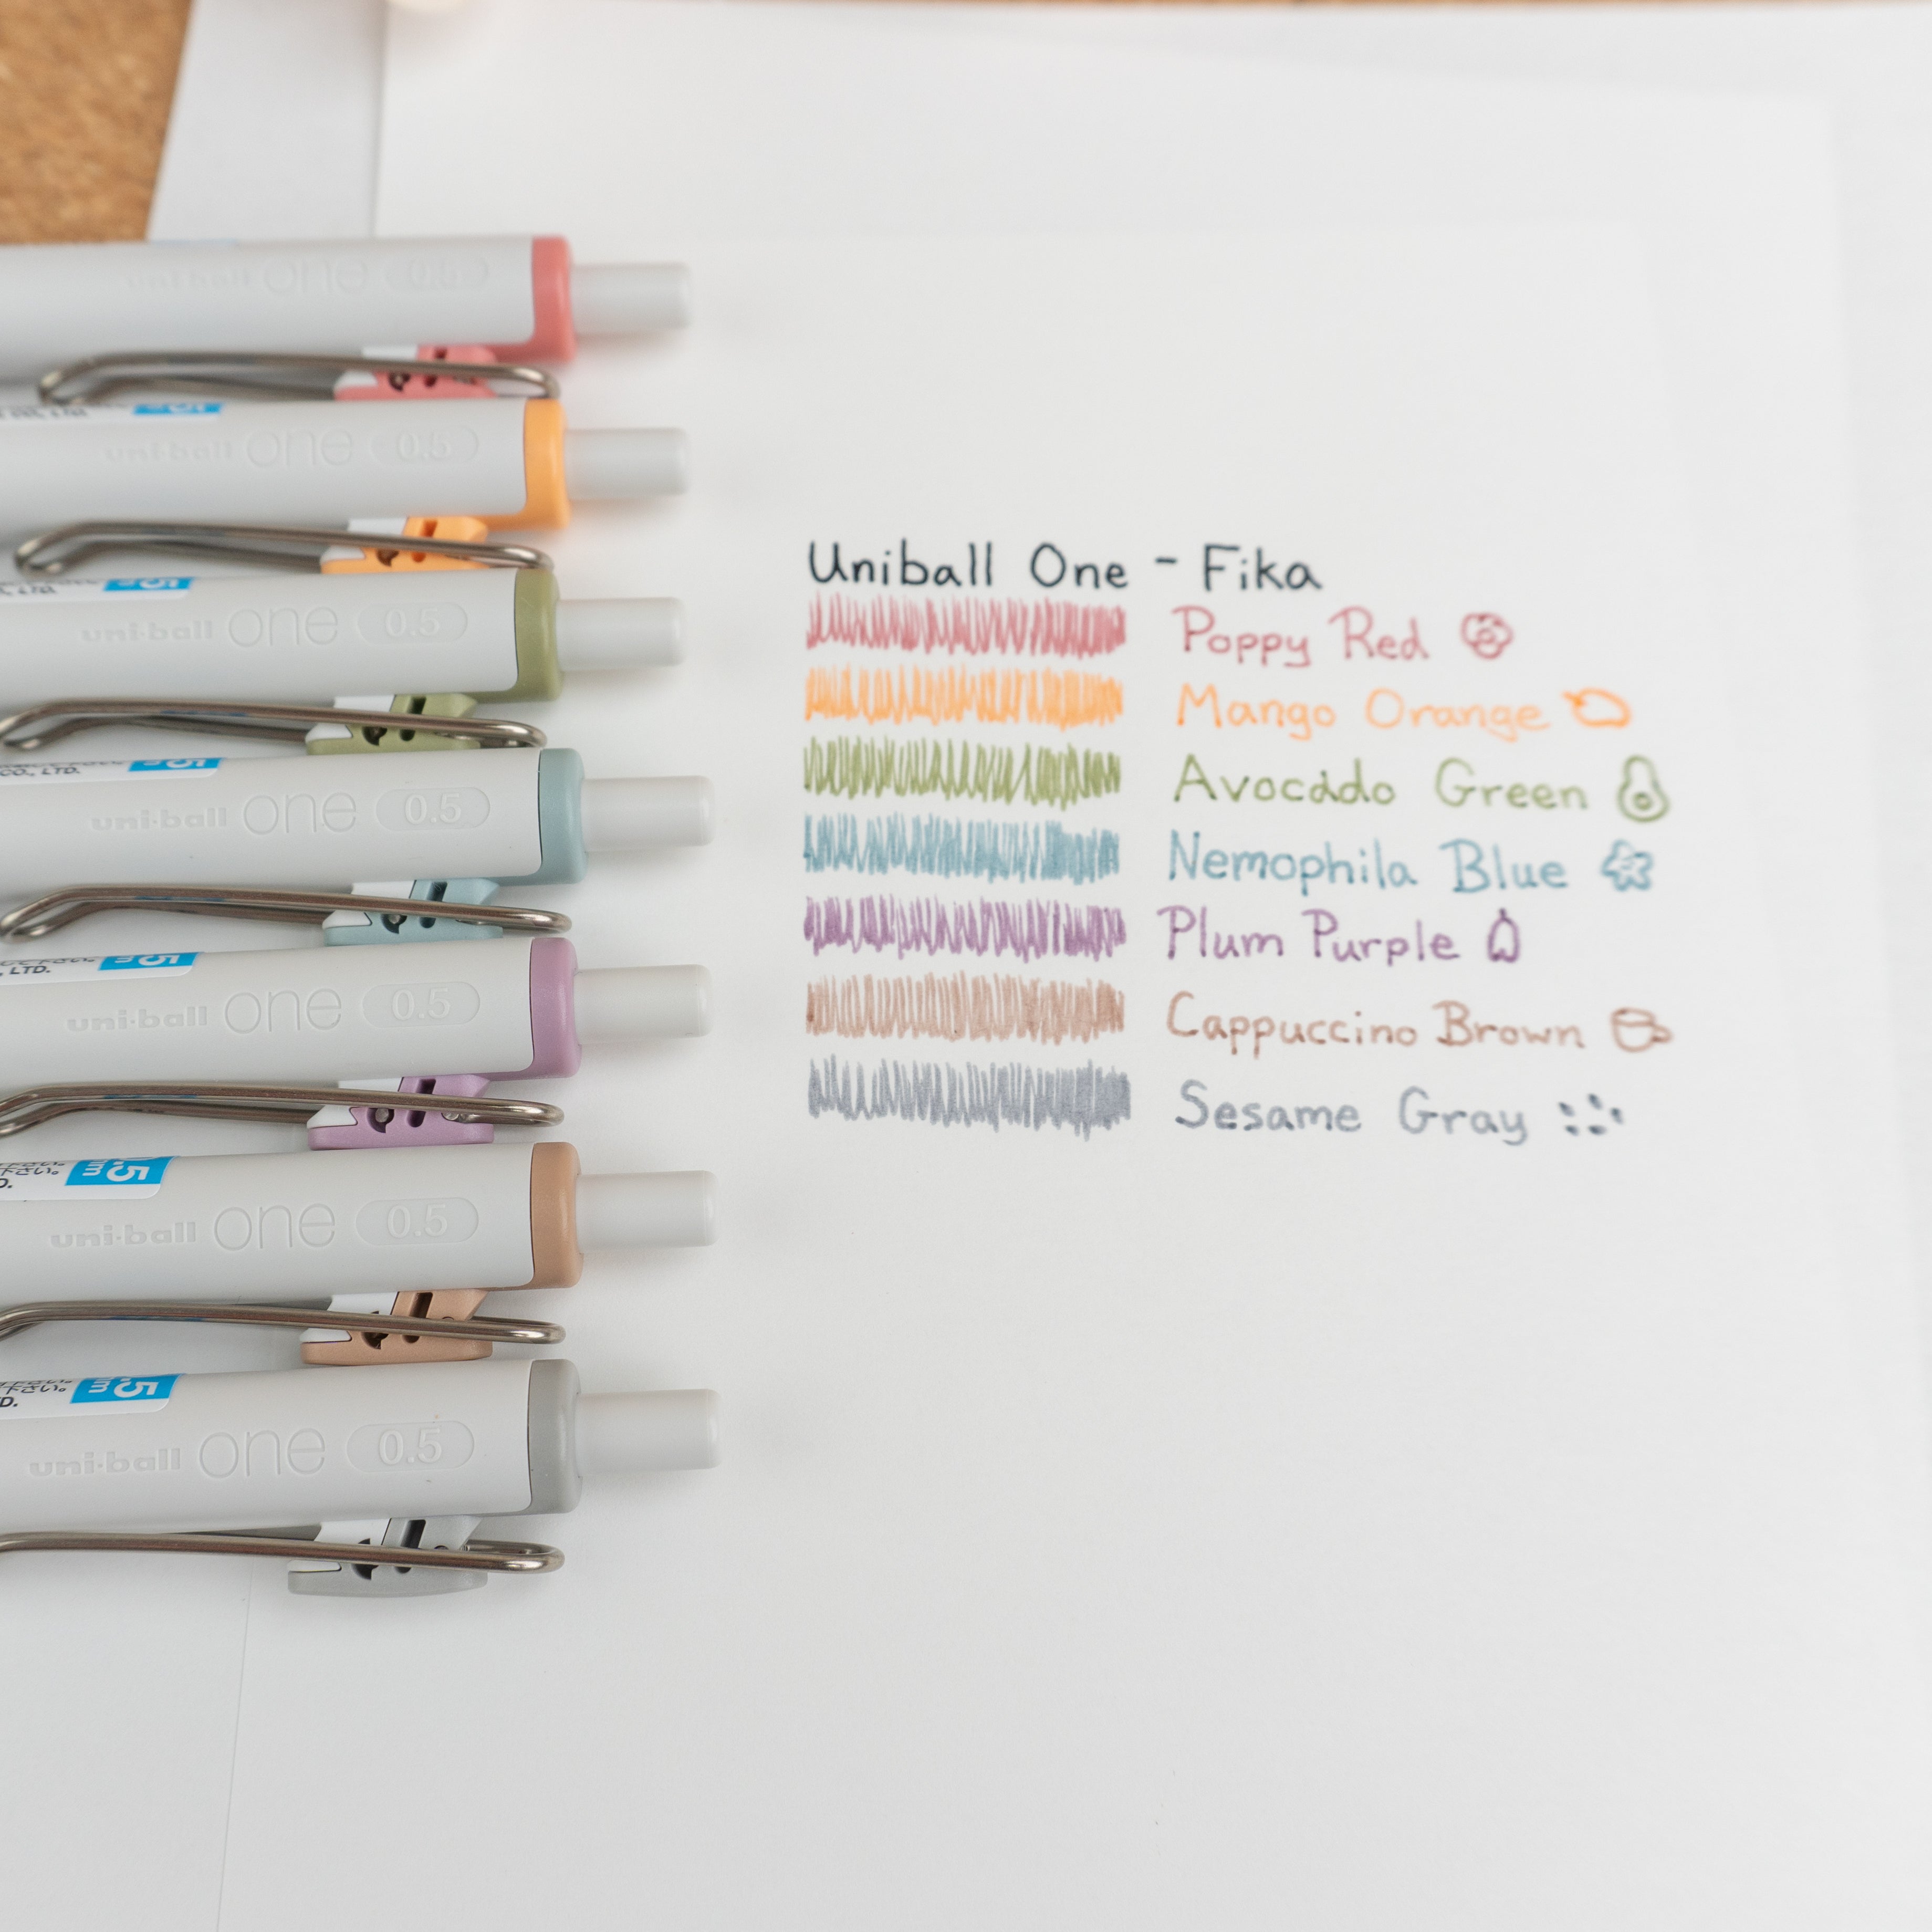 uni-ball one 0.5
uni-ball one 0.5
uni-ball one 0.5
CO., LTD.
uni-ball one 0.5
, LTD.
uni-ball one 0.5
下さい。
uni-ball one 0.5
下さい。
uni-ball one 0.5
Uniball One - Fika
Poppy Red
Mango Orange
Avocado Green
Nemophila Blue
Plum Purple
Cappuccino Brown
Sesame Gray